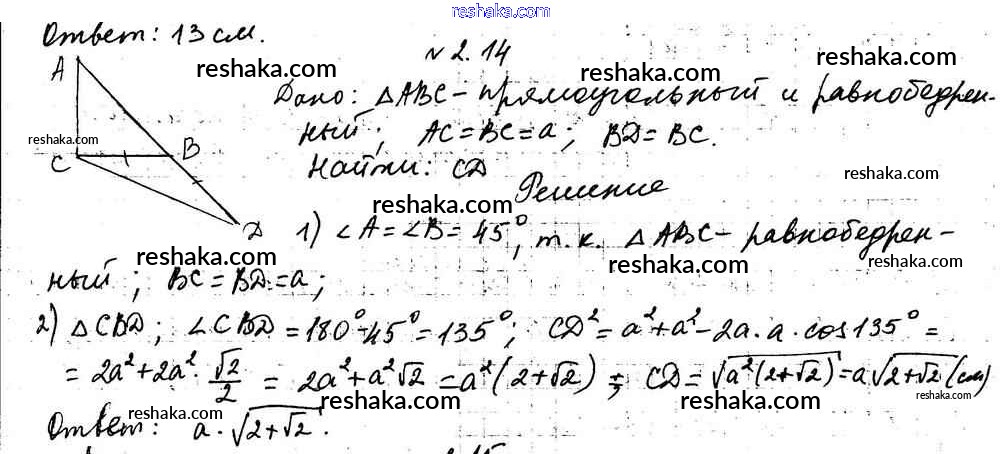 reshaka.com
Ответ: 13 см.
№ 2.14
A
reshaka.com
reshaka.com
Дано: △ABC - прямоугольный и равнобедрен-
ный; AC = BC = a; BD = BC.
reshaka.com
C
B
Найти: CD
reshaka.com
Решение
reshaka.com
D
1) ∠A = ∠B = 45°, т.к. △ABC - равнобедрен-
reshaka.com
reshaka.com
reshaka.com
ный; BC = BD = a;
2) △CBD; ∠CBD = 180° - 45° = 135°; CD² = a² + a² - 2a·a·cos135° =
= 2a² + 2a² · √2/2 = 2a² + a²√2 = a²(2+√2); CD = √(a²(2+√2)) = a√(2+√2) (см)
reshaka.com
reshaka.com
reshaka.com
reshaka.com
Ответ: a·√(2+√2).